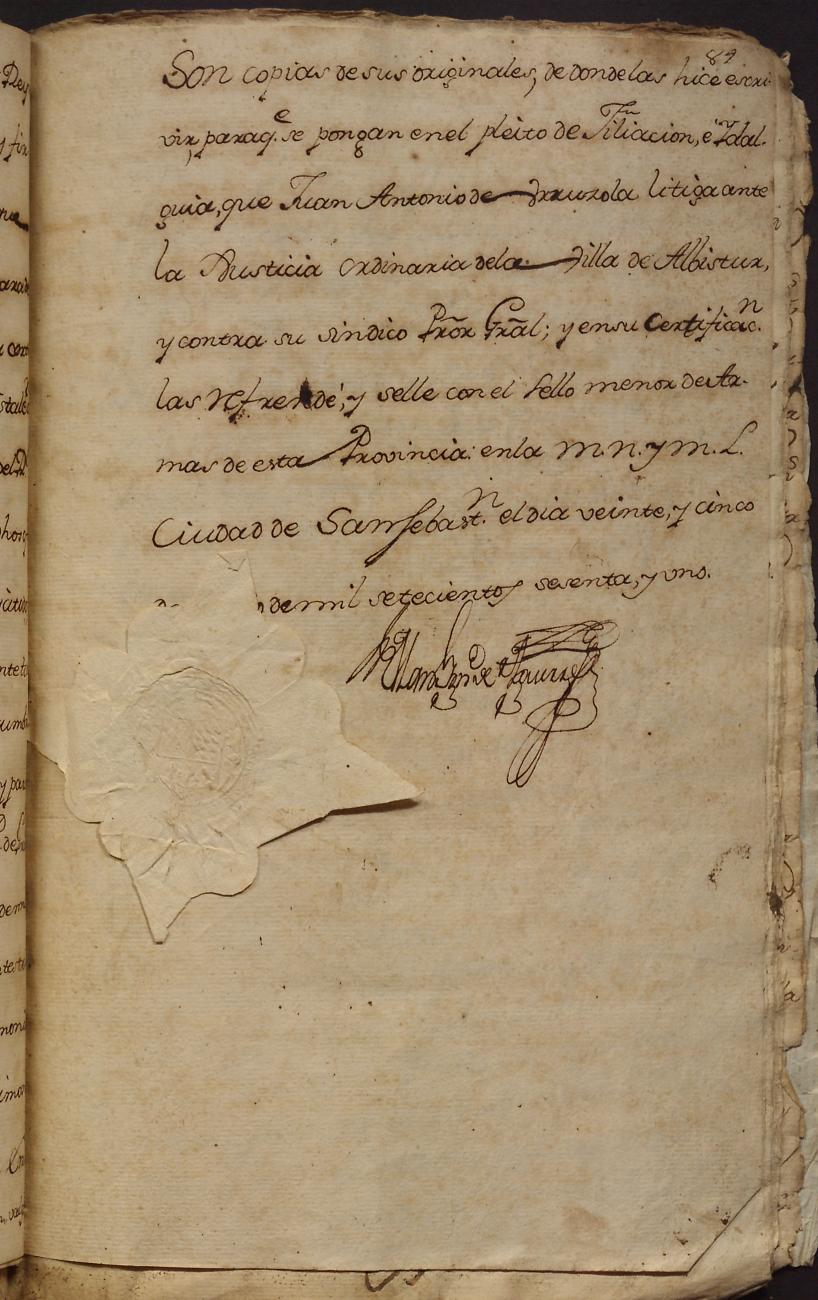 84
Son copias de sus originales, de donde las hice escri-
vir, para q.e se pongan en el pleito de Filiacion, é Ydal-
guia, que Juan Antonio de Yrruzola litiga ante
la Justicia ordinaria de la Villa de Albistur,
y contra su sindico Prõr Grãl; y en su Certificac.n
las refrendé, y selle con el sello menor de Ar-
mas de esta Provincia: en la M.N. y M.L.
Ciudad de San Sebast.n el dia veinte, y cinco
de mil setecientos sesenta, y uno.